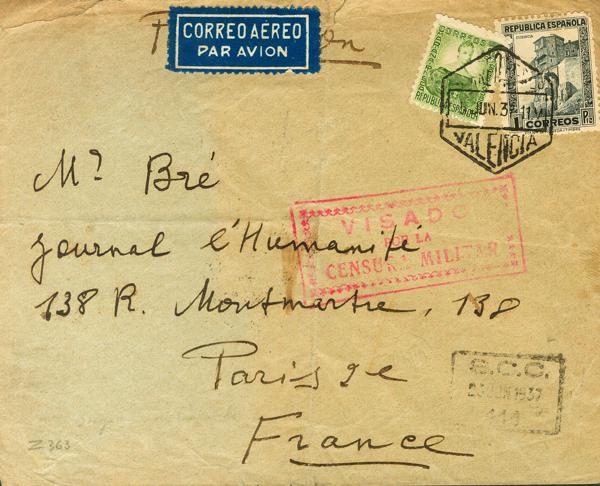 CORREO AÉREO
PAR AVION
CORREOS
REPUBLICA ESPAÑOLA
REPUBLICA ESPAÑOLA
CUENCA
1 CORREOS Pta
JUN.37 11M
VALENCIA
Mr Bré
journal l'Humanité
138 R. Montmartre, 138
Paris 2e
France
VISADO
POR LA
CENSURA MILITAR
S.C.C.
23 JUN 1937
Z 363